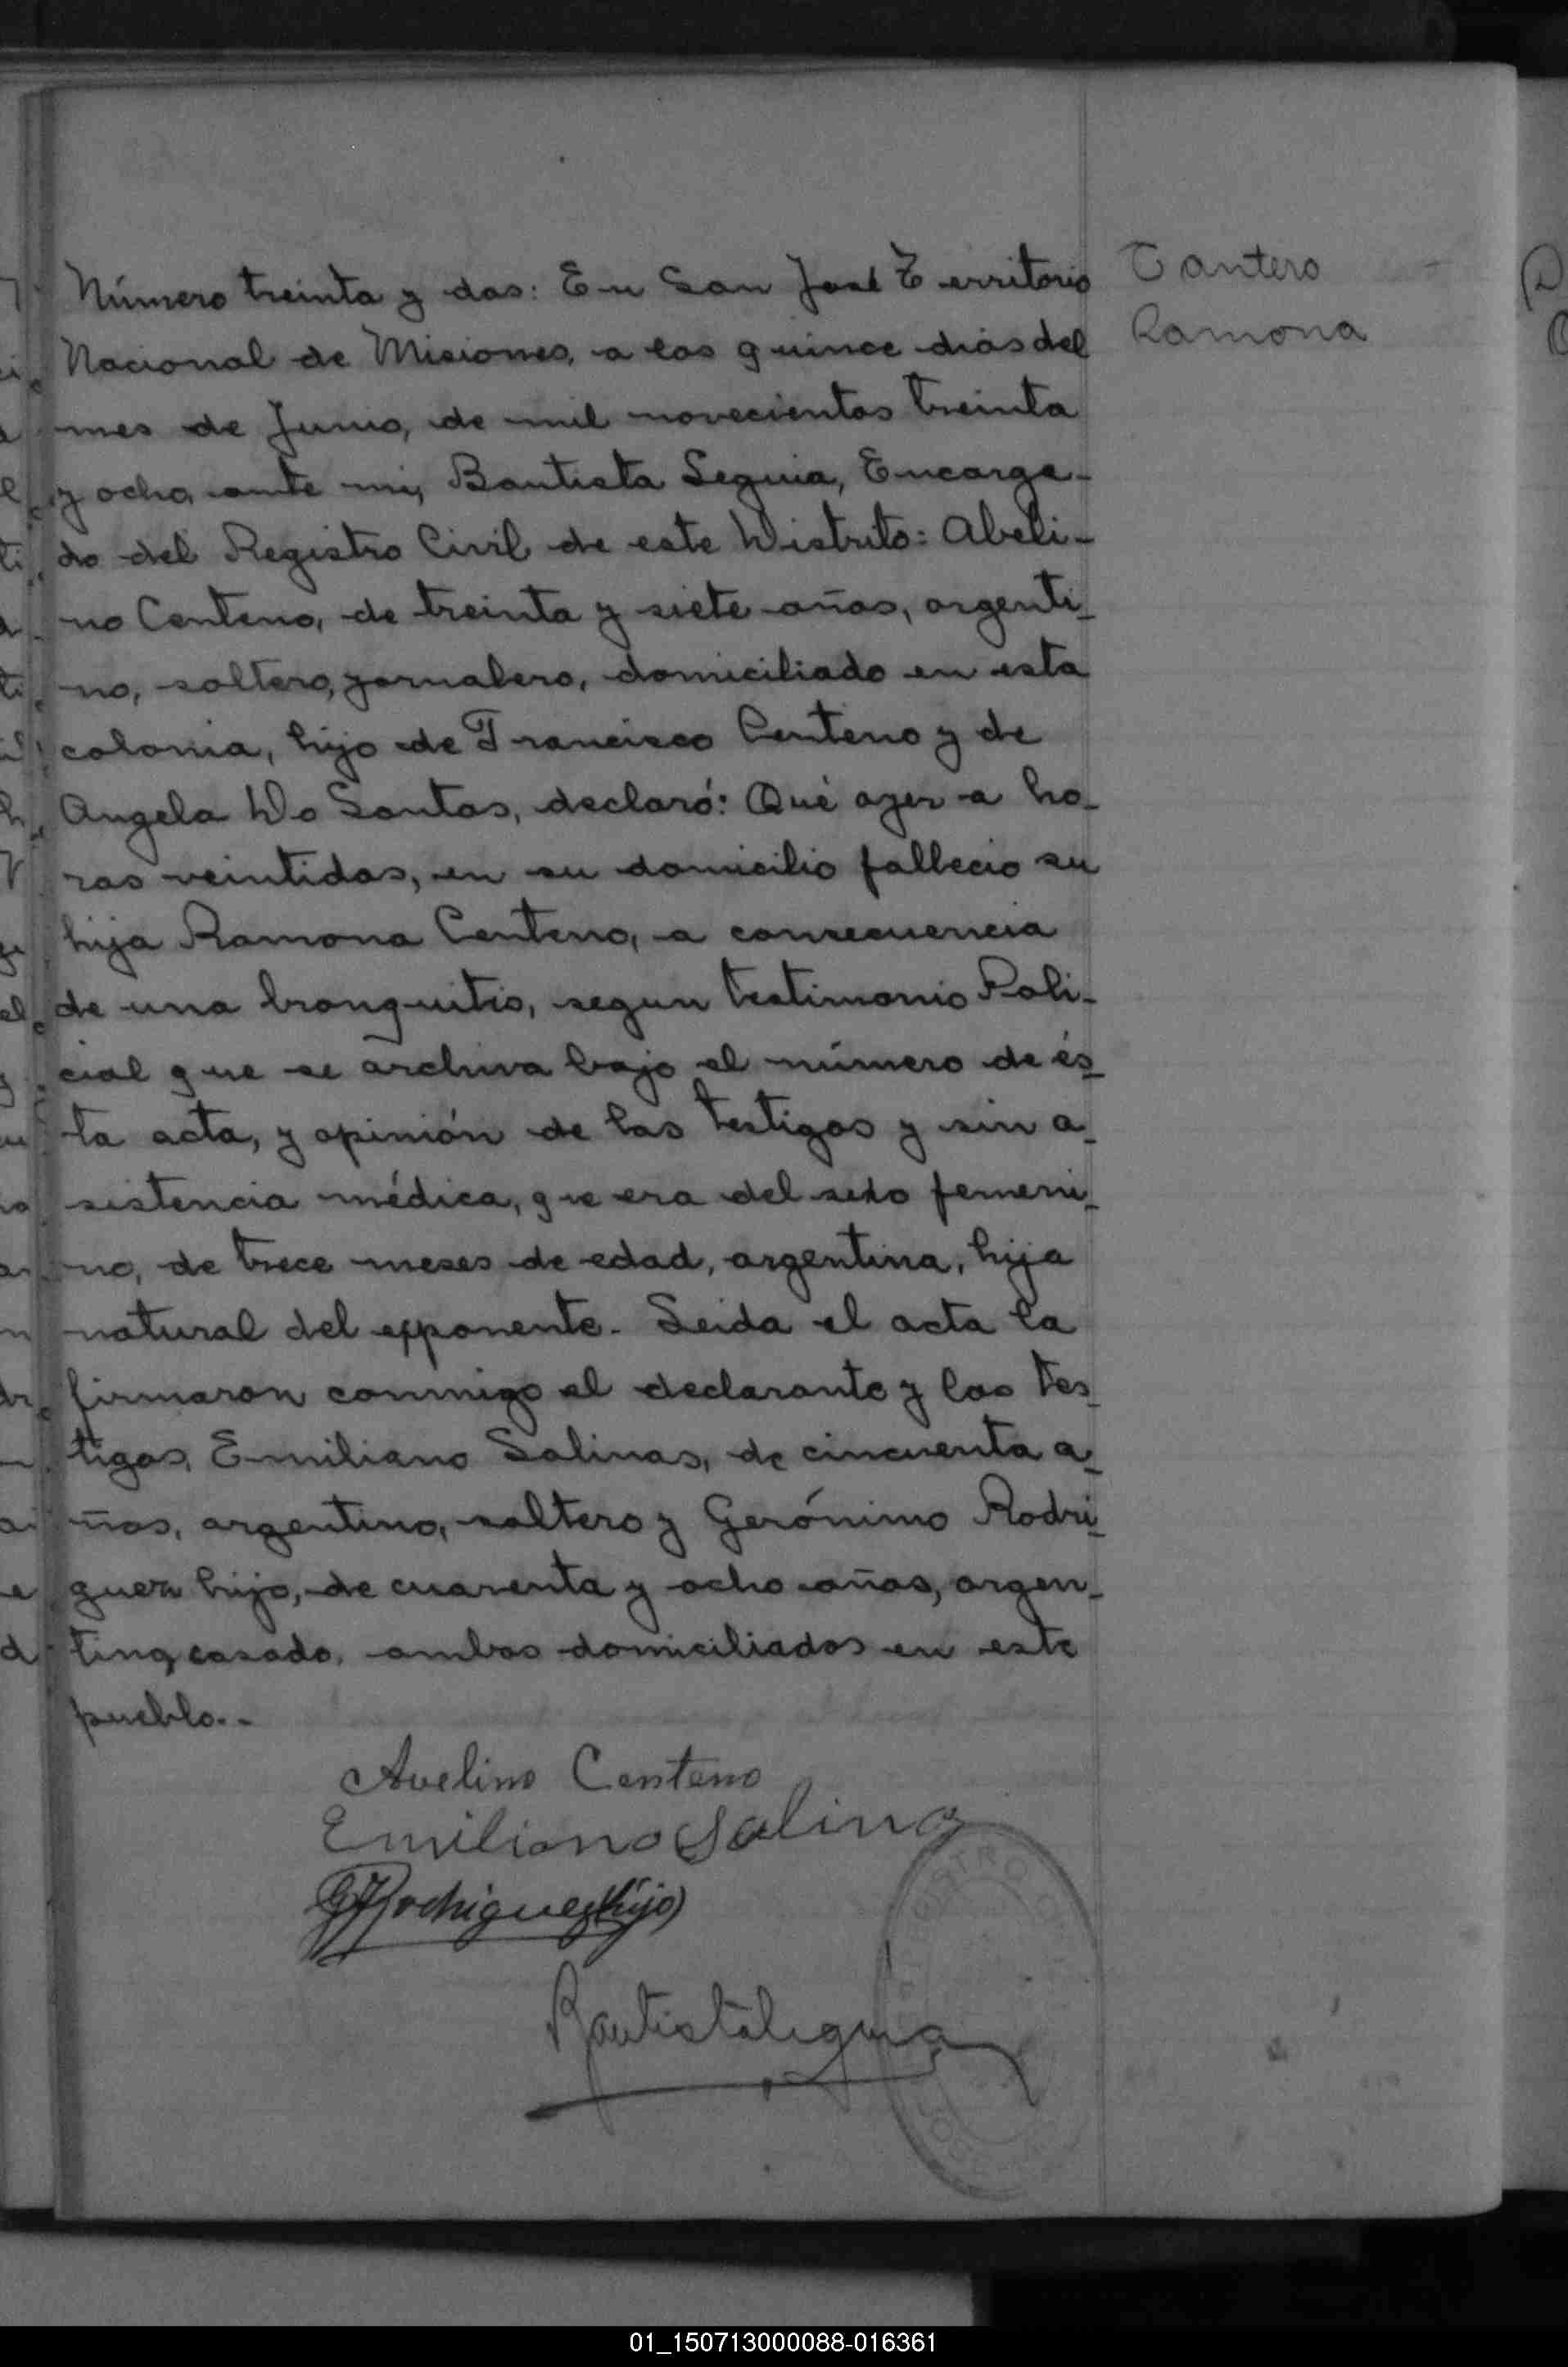 Número treinta y dos: En San José Territorio
Nacional de Misiones, a los quince dias del
mes de Junio, de mil novecientos treinta
y ocho, ante mi, Bautista Seguia, Encarga-
do del Registro Civil de este Distrito: Abeli-
no Centeno, de treinta y siete años, argenti-
no, soltero, jornalero, domiciliado en esta
colonia, hijo de Francisco Centeno y de
Angela Do Santos, declaró: Qué ayer a ho-
ras veintidos, en su domicilio fallecio su
hija Ramona Centeno, a consecuencia
de una bronquitis, segun testimonio Poli-
cial que se archiva bajo el número de és-
ta acta, y opinión de los testigos y sin a-
sistencia médica, que era del sexo femeni-
no, de trece meses de edad, argentina, hija
natural del exponente. Leida el acta la
firmaron conmigo el declarante y los tes-
tigos, Emiliano Salinas, de cincuenta a-
ños, argentino, soltero y Gerónimo Rodri-
guez hijo, de cuarenta y ocho años, argen-
tino, casado, ambos domiciliados en este
pueblo.-
Cantero
Ramona
Avelino Centeno
Emiliano Salina
G Rodriguez (hijo)
Bautista Seguia
01_150713000088-016361